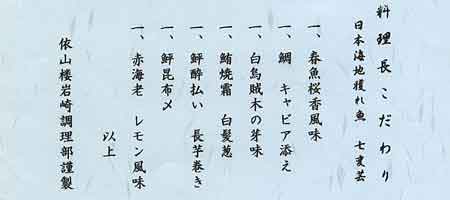 料理長こだわり
日本海地獲れ魚 七変芸
一、春魚桜香風味
一、鯛 キャビア添え
一、白烏賊木の芽味
一、鮪焼霜 白髪葱
一、鮃酔払い 長芋巻き
一、鮃昆布〆
一、赤海老 レモン風味
以上
依山楼岩崎調理部謹製